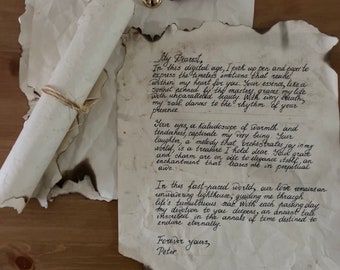 My Dearest,
In this digital age, I pick up pen and paper to
express the timeless emotions that reside
within my heart for you. Your essence, like a
sonnet penned by the masters, graces my life
with unparalleled beauty. With every breath,
my soul dances to the rhythm of your
presence.
Your eyes, a kaleidoscope of warmth and
tenderness, captivate my very being. Your
laughter, a melody that orchestrates joy in my
world, is a treasure I hold dear. Your grace
and charm are an ode to elegance itself, an
enchantment that leaves me in perpetual
awe.
In this fast-paced world, our love remains an
unwavering lighthouse, guiding me through
life's tumultuous seas. With each passing day
my devotion to you deepens, an ancient tale
inscribed in the annals of time destined to
endure eternally.
Forever yours,
Peter